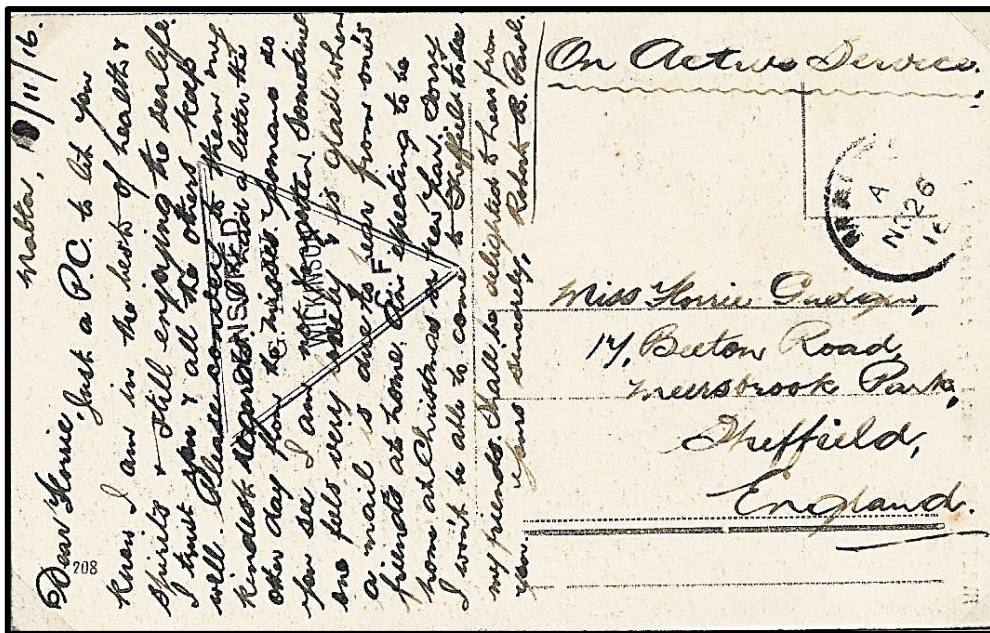 Malta, /11/16.
Dear Florrie,
Just a P.C. to let you
know I am in the best of health &
spirits & still enjoying the life.
I trust you & all the others keep
well. Please convey to them my
kindest regards. I had a letter the
other day from the Misses so
you see I am not forgotten. Sometimes
one feels very & is glad when
a mail is due to hear from one's
friends at home. Am expecting to be
home at Christmas or New Year. Sorry
I won't be able to come to Sheffield to see
my friends. Shall be delighted to hear from
you. Yours sincerely, Robert B.
CENSORED
G. WILKINSON
C F
208
On Active Service.
A
NO 26
16
Miss Florrie
17, Beeton Road,
Meersbrook Park,
Sheffield,
England.